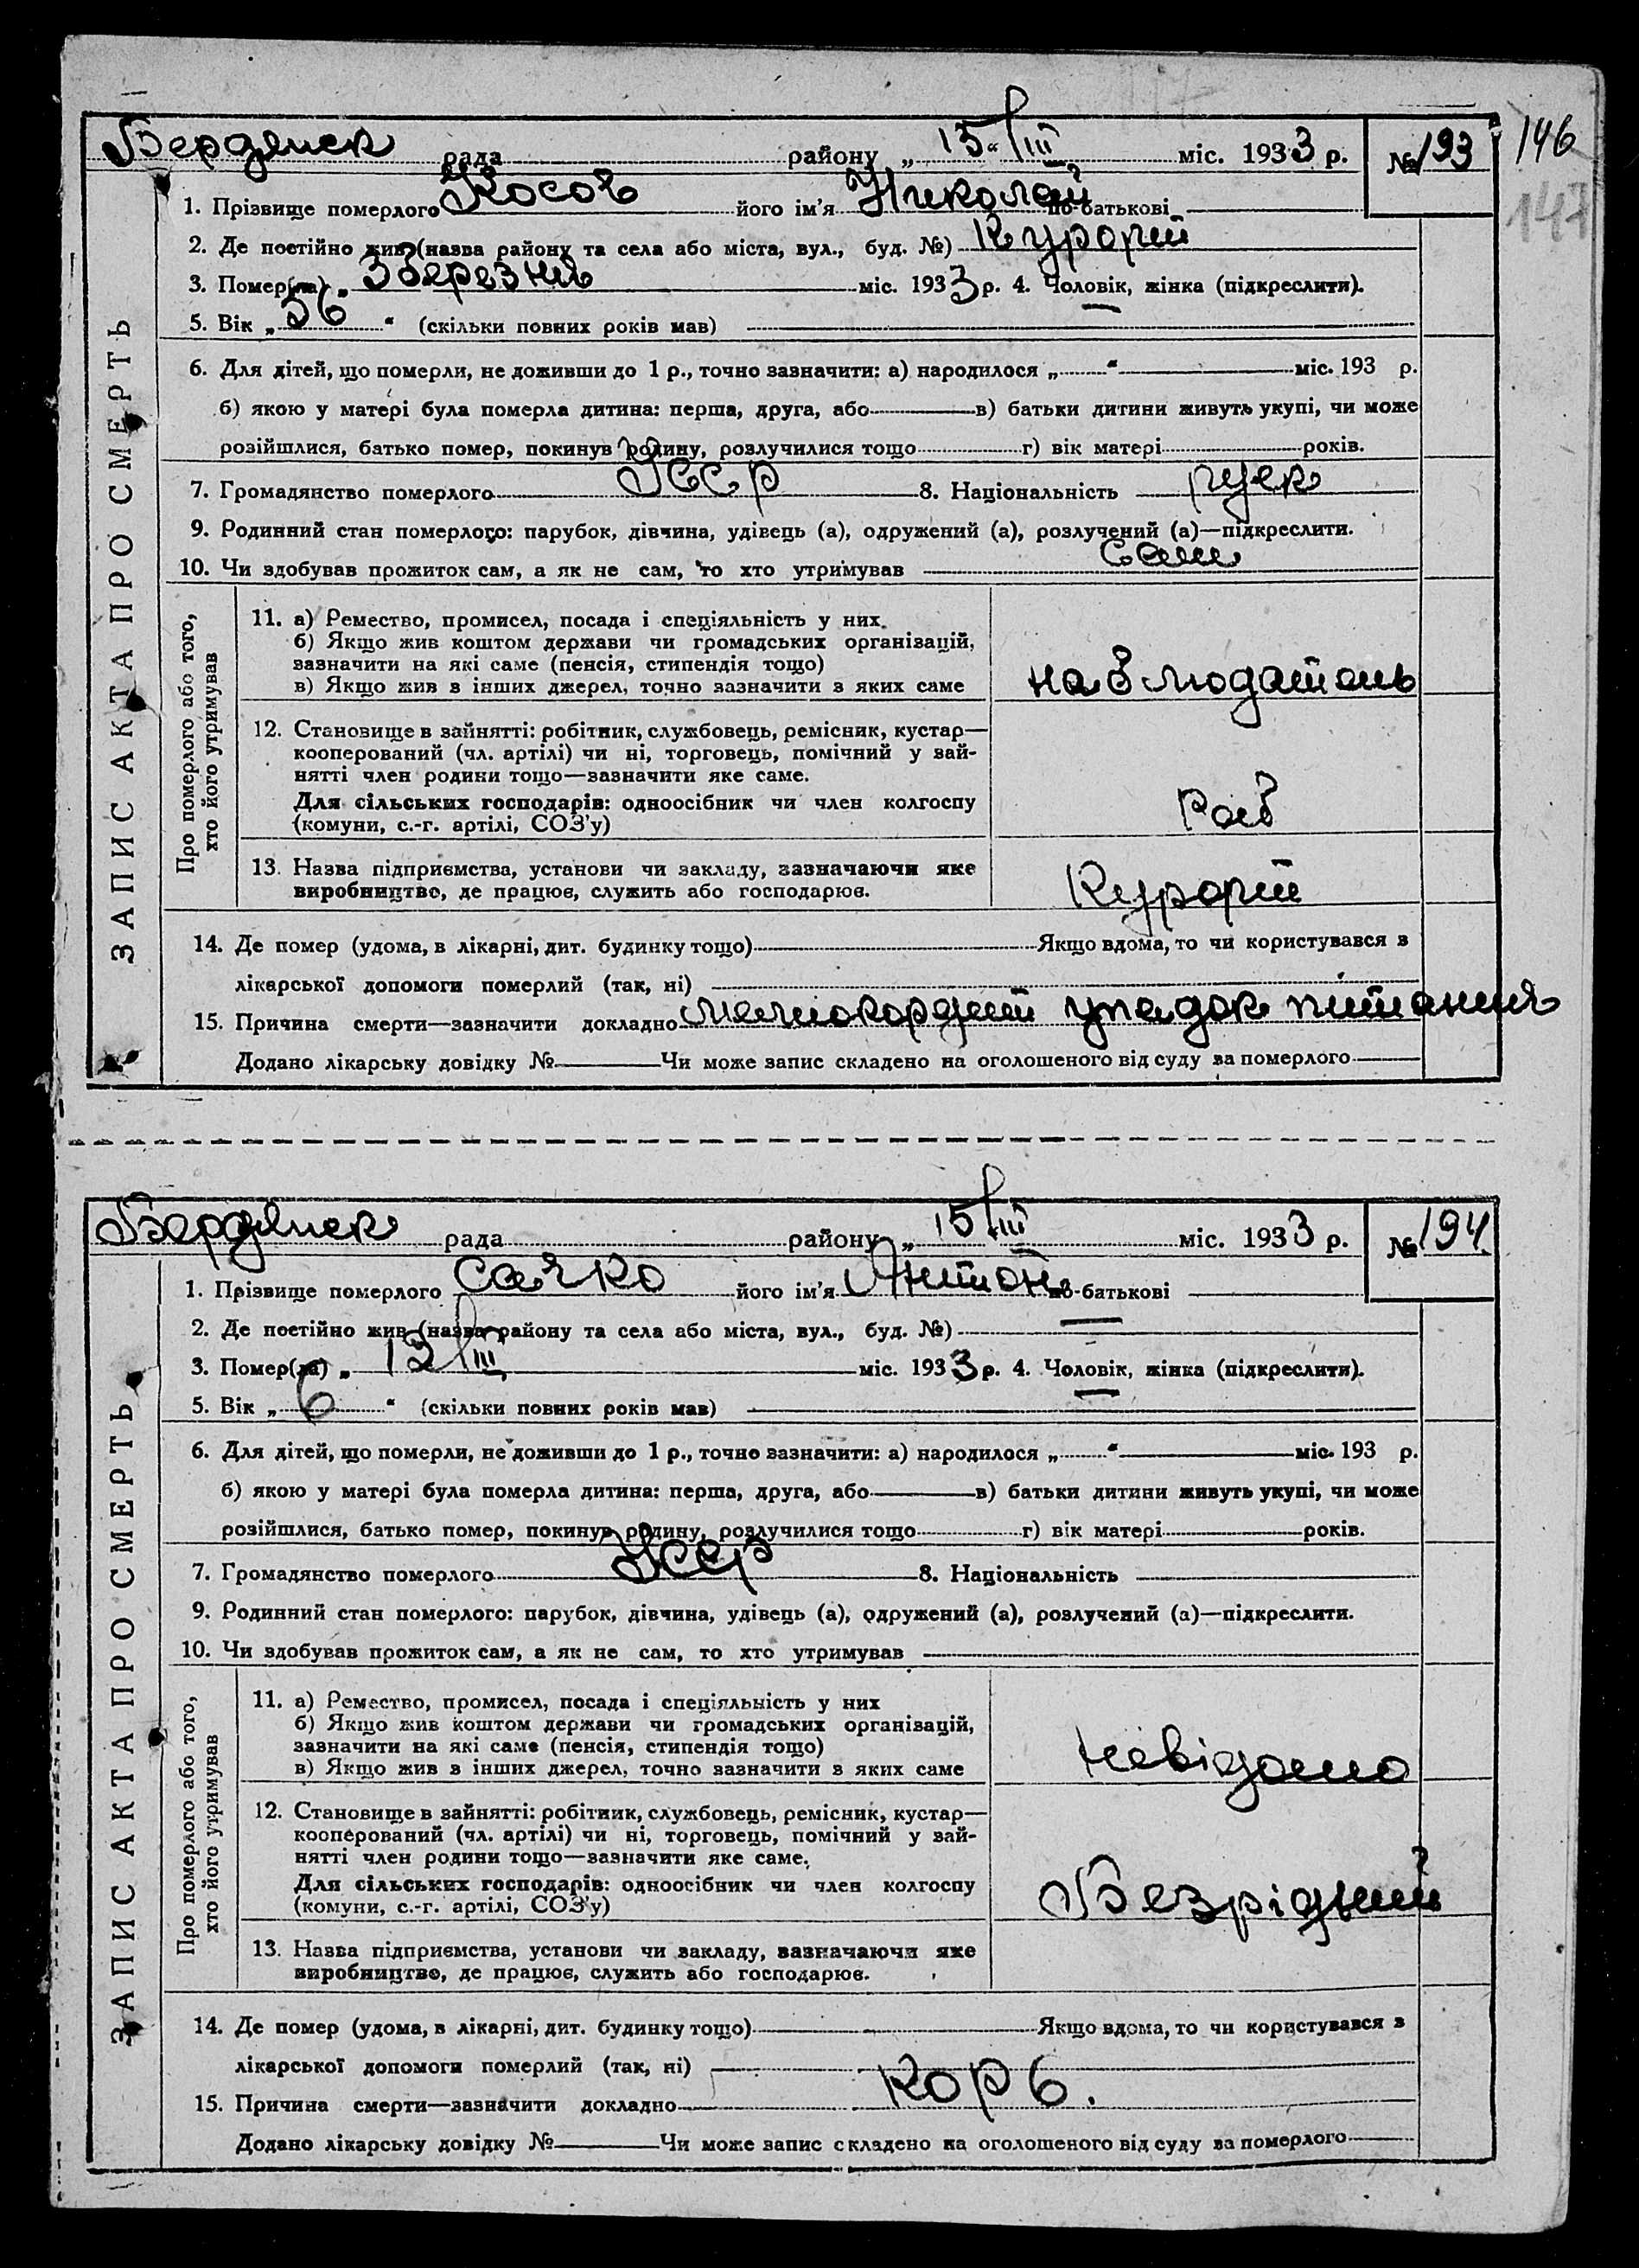 146
147
Бердянск рада району „15“ III міс. 1933 р. № 193
ЗАПИС АКТА ПРО СМЕРТЬ
1. Прізвище померлого Косов його ім'я Николай по-батькові
2. Де постійно жив (назва району та села або міста, вул., буд. №) Курорт
3. Помер(ла) „ 3 березня міс. 1933 р. 4. Чоловік, жінка (підкреслити).
5. Вік „ 56 “ (скільки повних років мав)
6. Для дітей, що померли, не доживши до 1 р., точно зазначити: а) народилося „ “ міс. 193 р.
б) якою у матері була померла дитина: перша, друга, або в) батьки дитини живуть укупі, чи може
розійшлися, батько помер, покинув родину, розлучилися тощо г) вік матері років.
7. Громадянство померлого Уеср 8. Національність
9. Родинний стан померлого: парубок, дівчина, удівець (а), одружений (а), розлучений (а)—підкреслити.
10. Чи здобував прожиток сам, а як не сам, то хто утримував сам
Про померлого або того,
хто його утримував
11. а) Ремество, промисел, посада і спеціяльність у них.
б) Якщо жив коштом держави чи громадських організацій,
зазначити на які саме (пенсія, стипендія тощо)
в) Якщо жив з інших джерел, точно зазначити з яких саме
наблюдатель
12. Становище в зайнятті: робітник, службовець, ремісник, кустар—
кооперований (чл. артілі) чи ні, торговець, помічний у зай-
нятті член родини тощо—зазначити яке саме.
Для сільських господарів: одноосібник чи член колгоспу
(комуни, с.-г. артілі, СОЗ'у)
Раб
13. Назва підприємства, установи чи закладу, зазначаючи яке
виробництво, де працює, служить або господарює.
Курорт
14. Де помер (удома, в лікарні, дит. будинку тощо) Якщо вдома, то чи користувався з
лікарської допомоги померлий (так, ні)
15. Причина смерти—зазначити докладно упадок питания
Додано лікарську довідку № Чи може запис складено на оголошеного від суду за померлого
Бердянск рада району „ 15/III міс. 1933 р. № 194
ЗАПИС АКТА ПРО СМЕРТЬ
1. Прізвище померлого Сачко його ім'я Антон по-батькові
2. Де постійно жив (назва району та села або міста, вул., буд. №) —
3. Помер(ла) „ 12/III міс. 1933 р. 4. Чоловік, жінка (підкреслити).
5. Вік „ 6 “ (скільки повних років мав)
6. Для дітей, що померли, не доживши до 1 р., точно зазначити: а) народилося „ “ міс. 193 р.
б) якою у матері була померла дитина: перша, друга, або в) батьки дитини живуть укупі, чи може
розійшлися, батько помер, покинув родину, розлучилися тощо г) вік матері років.
7. Громадянство померлого Уеср 8. Національність
9. Родинний стан померлого: парубок, дівчина, удівець (а), одружений (а), розлучений (а)—підкреслити.
10. Чи здобував прожиток сам, а як не сам, то хто утримував
Про померлого або того,
хто його утримував
11. а) Ремество, промисел, посада і спеціяльність у них
б) Якщо жив коштом держави чи громадських організацій,
зазначити на які саме (пенсія, стипендія тощо)
в) Якщо жив з інших джерел, точно зазначити з яких саме
невідомо
12. Становище в зайнятті: робітник, службовець, ремісник, кустар—
кооперований (чл. артілі) чи ні, торговець, помічний у зай-
нятті член родини тощо—зазначити яке саме.
Для сільських господарів: одноосібник чи член колгоспу
(комуни, с.-г. артілі, СОЗ'у)
Безрідний
13. Назва підприємства, установи чи закладу, зазначаючи яке
виробництво, де працює, служить або господарює.
14. Де помер (удома, в лікарні, дит. будинку тощо) Якщо вдома, то чи користувався з
лікарської допомоги померлий (так, ні)
15. Причина смерти—зазначити докладно корь.
Додано лікарську довідку № Чи може запис складено на оголошеного від суду за померлого